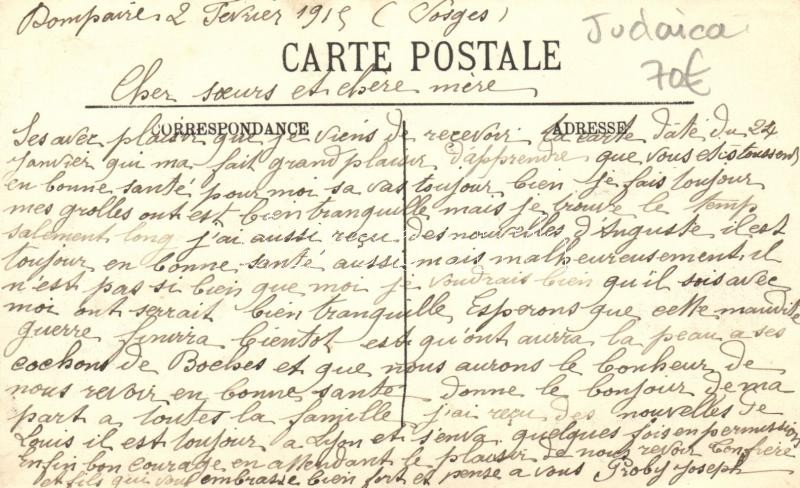 Dompaire 2 Février 1915 (Vosges)
Judaica
CARTE POSTALE
70€
Cher sœurs et chere mère
CORRESPONDANCE
ADRESSE
Ses avec plaisir que je viens de recevoir ta carte daté du 24
Janvier qui ma fait grand plaisir d'apprendre que vous etis toussent
en bonne santé pour moi sa vas toujour bien je fais toujour
mes grolles ont est bien tranquille mais je trouve le temp
salement long j'ai aussi reçu des nouvelles d'Auguste il est
toujour en bonne santé aussi mais malheureusement il
n'est pas si bien que moi je voudrais bien qu'il sois avec
moi ont serrait bien tranquille Esperons que cette maudite
guerre finira bientot est qu'ont aurra la peau a ses
cochons de Boches et que nous aurons le bonheur de
nous revoir en bonne santé donne le bonjour de ma
part a toutes la famille j'ai reçu des nouvelles de
Louis il est toujour a Lyon et s'en va quelques fois en permission
Enfin bon courage en attendant le plaisir de nous revoir ton frère
et fils qui vous embrasse bien fort et pense a vous Groby Joseph